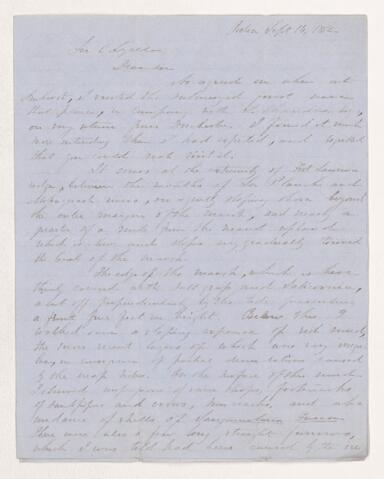 Sept 13, 1852
Sir C Lyell
Dear Sir
As agreed on when at
Amherst, I visited the submerged forest near
that place, in company with
on my return from Dorchester. I found it much
more interesting than I had expected, and regretted
that you could not visit it.
It occurs at the extremity of Fort Lawrence
ridge, between the mouths of La Planche and
rivers, on a gently sloping shore beyond
the outer margin of the marsh, and nearly a
quarter of a mile from the nearest upland
which is low and slopes very gradually toward
the level of the marsh.
The edge of the marsh, which is here
thinly covered with salt grass and
is cut off perpendicularly by the tide, presenting
a front five feet in height. Below this I
walked over a sloping expanse of red mud,
the more recent layers of which were very
in consequence of partial denudation caused
by the neap tides. On the surface of this mud
I observed impressions of rain drops, footmarks
of sandpipers and crows, and
abundance of shells of
There were also a few long straight furrows,
which I was told had been caused by the ice